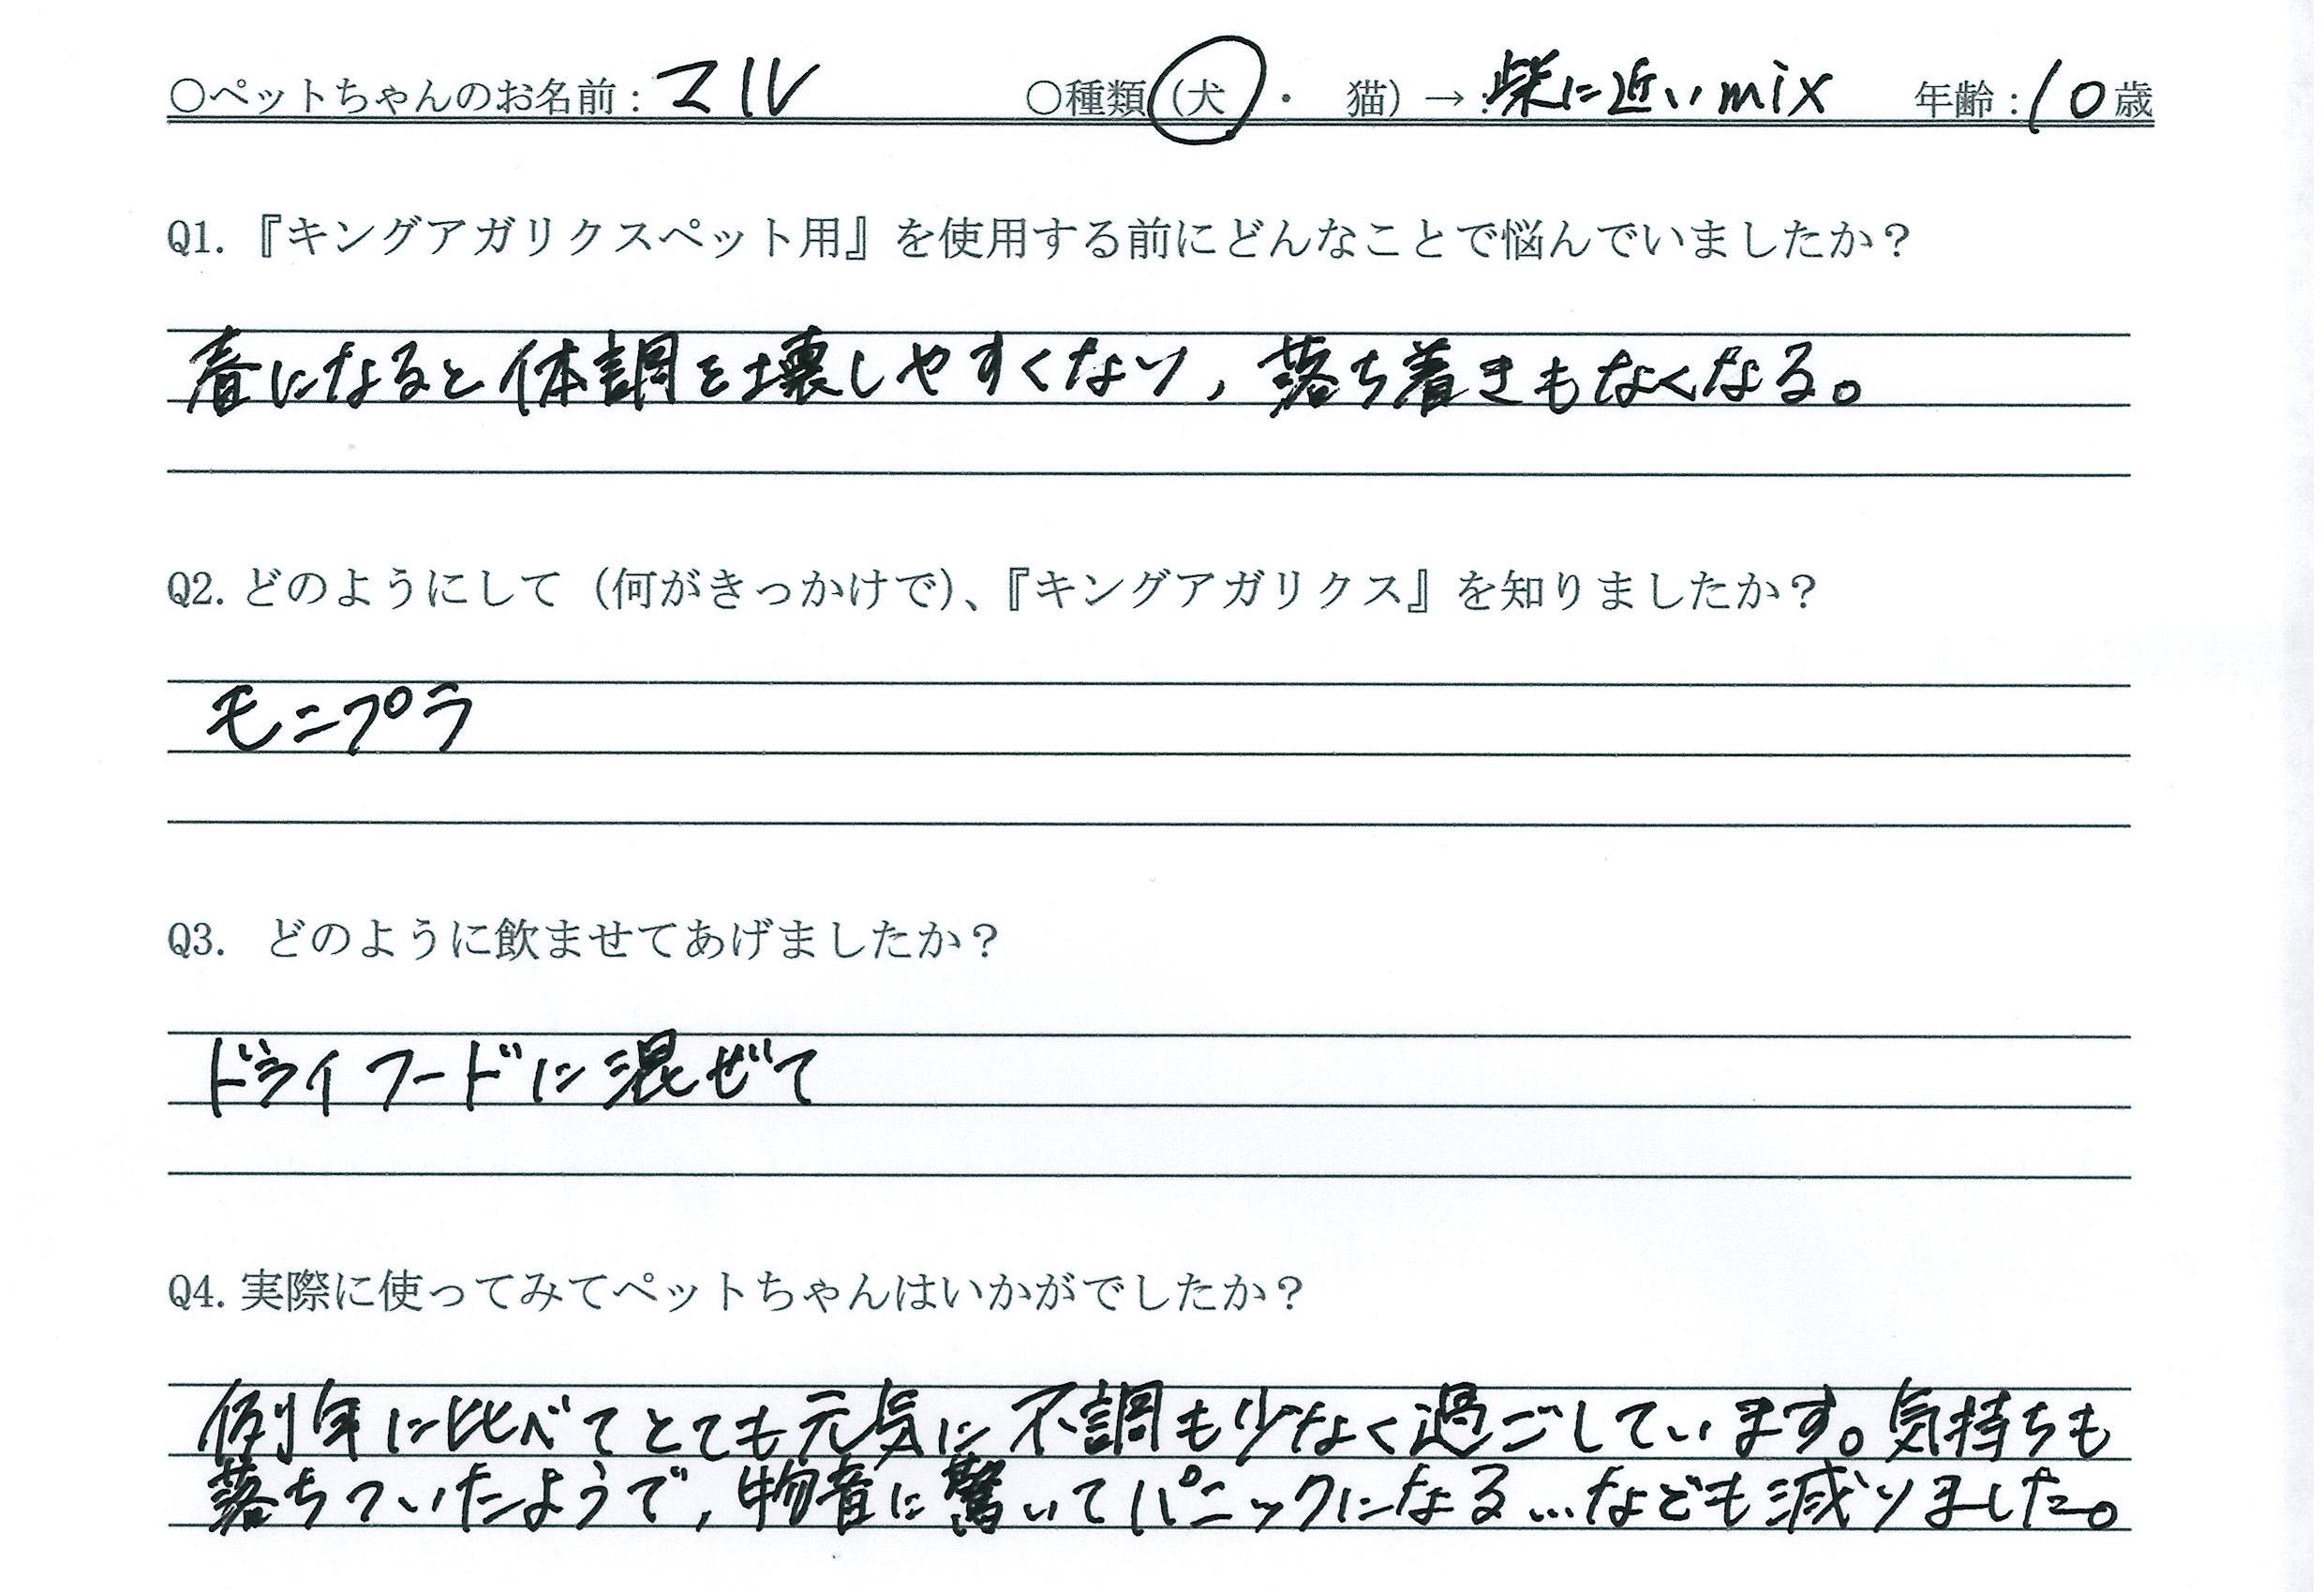 ○ペットちゃんのお名前：マル ○種類（犬 ・ 猫）→：柴に近いmix 年齢：10歳
Q1.『キングアガリクスペット用』を使用する前にどんなことで悩んでいましたか？
春になると体調を壊しやすくなり，落ち着きもなくなる。
Q2.どのようにして（何がきっかけで）、『キングアガリクス』を知りましたか？
モニプラ
Q3. どのように飲ませてあげましたか？
ドライフードに混ぜて
Q4.実際に使ってみてペットちゃんはいかがでしたか？
例年に比べてとても元気に不調も少なく過ごしています。気持ちも
落ちついたようで，物音に驚いてパニックになる…なども減りました。